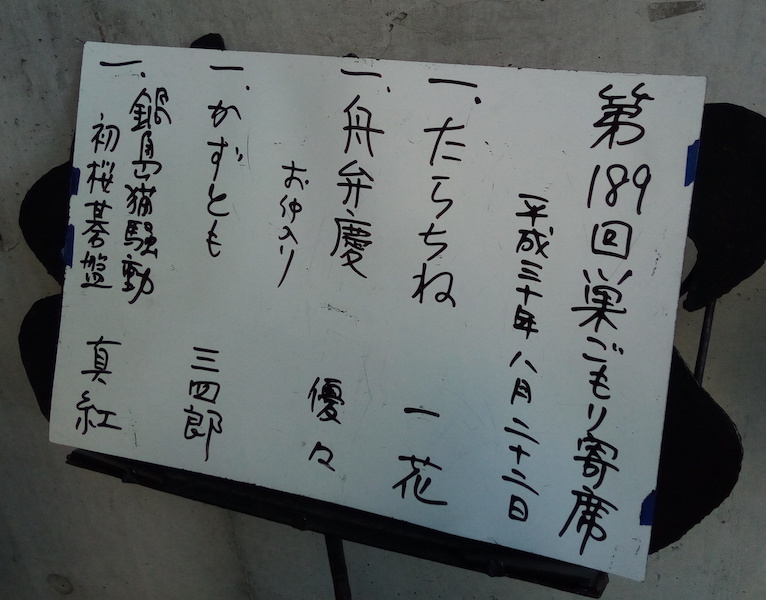 第189回巣ごもり寄席
平成三十年八月二十二日
一、たらちね 一花
一、舟弁慶 優々
お仲入り
一、かずとも 三四郎
一、鍋島猫騒動
初桜碁盤 真紅